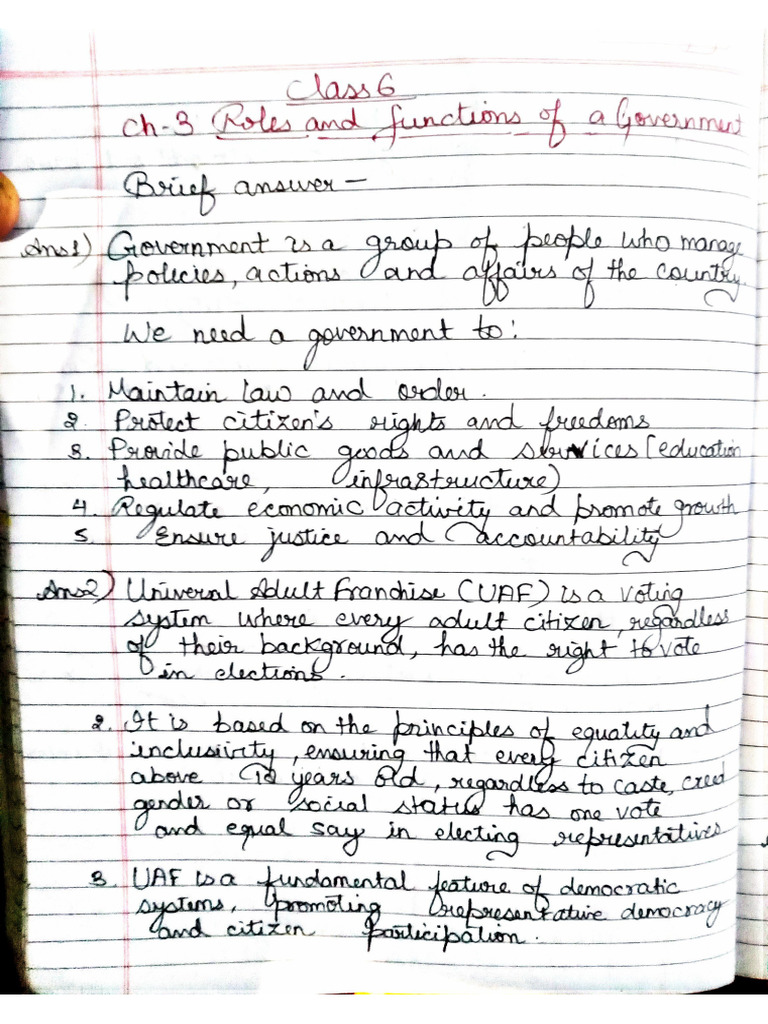 Class 6
Ch-3 Roles and functions of a Government
Brief answer -
Ans1) Government is a group of people who manage
policies, actions and affairs of the country.
We need a government to:
1. Maintain law and order.
2. Protect citizen's rights and freedoms
3. Provide public goods and services [education
healthcare, infrastructure)
4. Regulate economic activity and promote growth
5. Ensure justice and accountability
Ans2) Univeral Adult Franchise (UAF) is a voting
system where every adult citizen, regardless
of their background, has the right to vote
in elections.
2. It is based on the principles of equality and
inclusivity, ensuring that every citizen
above 18 years old, regardless to caste, creed
gender or social status has one vote
and equal say in electing representatives
3. UAF is a fundamental feature of democratic
systems, promoting representative democracy
and citizen participation.